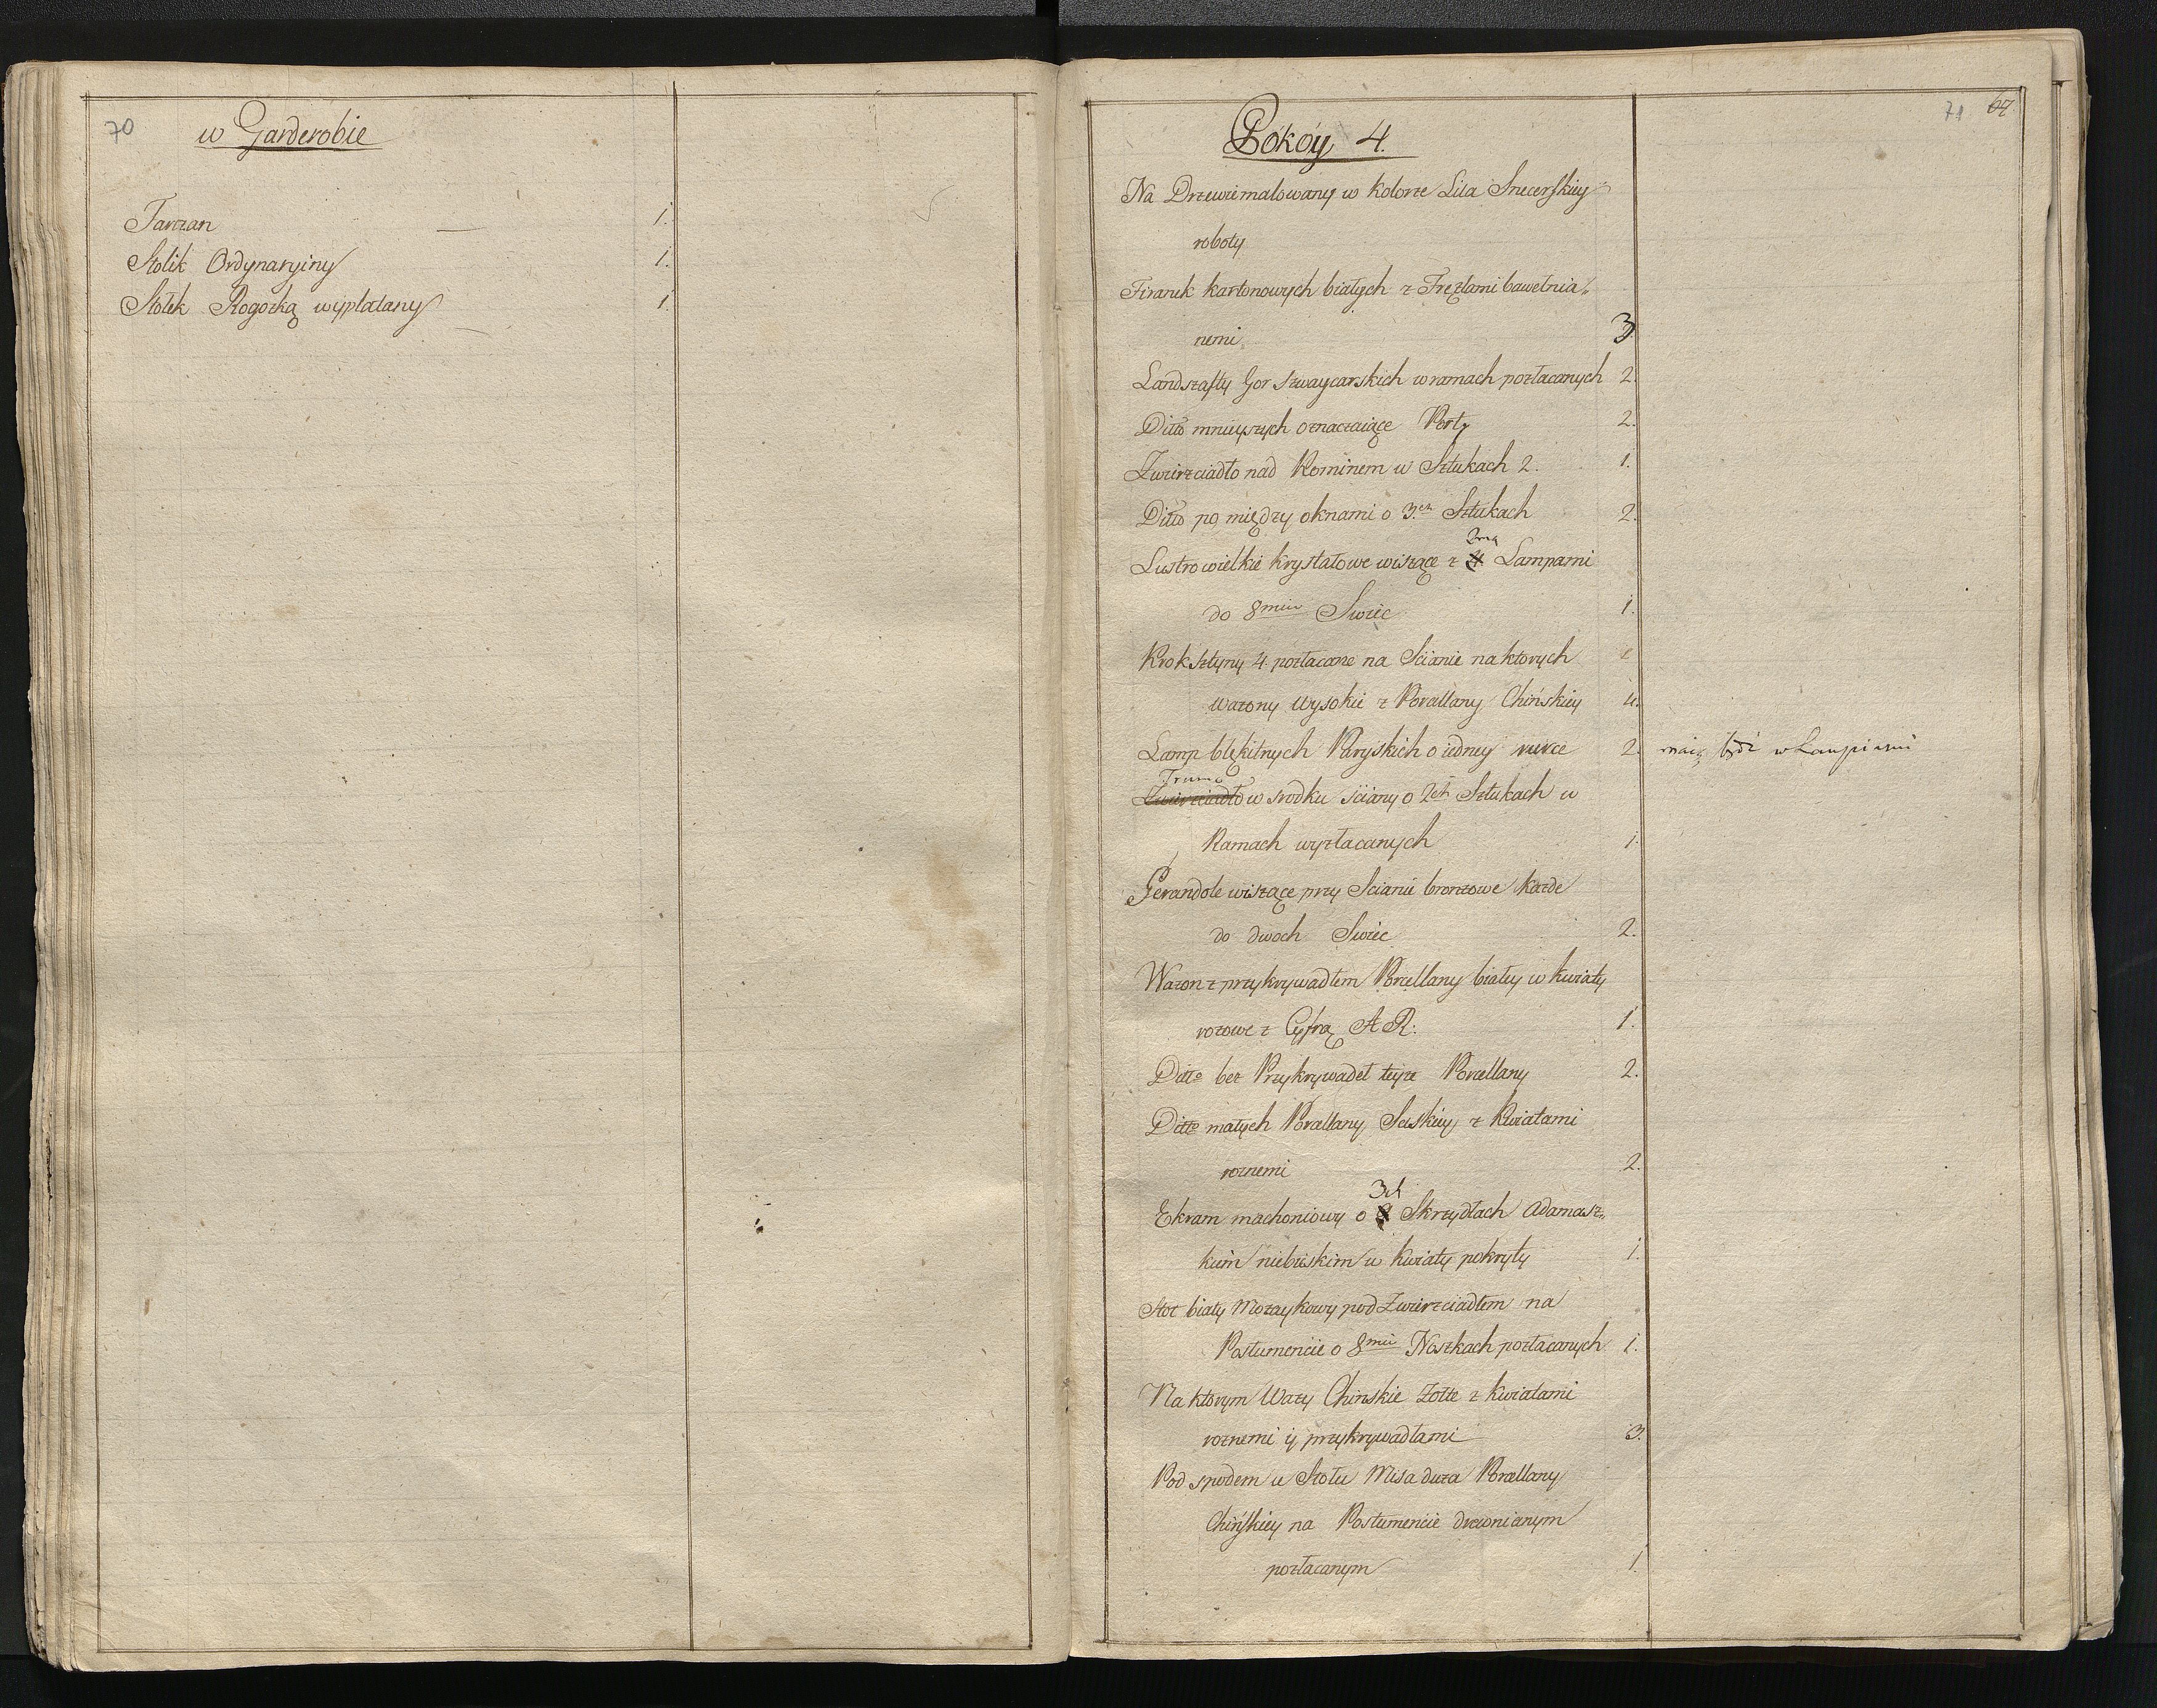 70
w Garderobie
Tarzan — 1.
Stolik Ordynaryiny 1.
Stołek Rogożką wyplatany 1.
71 67.
Pokóy 4.
Na Drzewie malowany w kolorze Lila Snecerskiey
roboty
Firanek kartonowych białych z Frezlami bawełnia„
nemi. 3
Landszafty Gor Szwaycarskich w ramach pozłacanych 2.
Ditto mnieyszych oznaczaiące Porty 2.
Zwierzciadło nad Kominem w Sztukach 2. 1.
Ditto po między oknami o 3.ch Sztukach 2.
Lustro wielkie krysztalowe wiszące z 4 2ma Lampami
do 8miu Swiec 1.
Kroksztyny 4. pozłacane na Scianie na ktorych
wazony wysokie z Porcellany Chińskiey 4.
Lamp błękitnych Paryskich o iedney rurce 2. maią bydź w Lampiarni
Zwierzciadło Trumo w srodku sciany o 2ch Sztukach w
Ramach wyzłacanych 1.
Gerandole wiszące przy Scianie bronzowe każde
do dwoch Swiec 2.
Wazon z przykrywadłem Porcellany białey w kwiaty
rożowe z Cyfrą A R: 1.
Ditto bez Przykrywadeł teyże Porcellany 2.
Ditto małych Porcellany Saskiey z Kwiatami
roznemi 2.
Ekram machoniowy o 3ch Skrzydłach Adamasz„
kiem niebieskim w kwiaty pokryty 1.
Stoł biały Mozaykowy pod Zwierzciadłem na
Postumencie o 8miu Noszkach pozłacanych 1.
Na ktorym Wazy Chinskie żołte z kwiatami
roznemi y przykrywadłami 3.
Pod spodem u Stołu Misa duża Porcellany
Chińskiey na Postumencie drewnianym
pozłacanym 1.